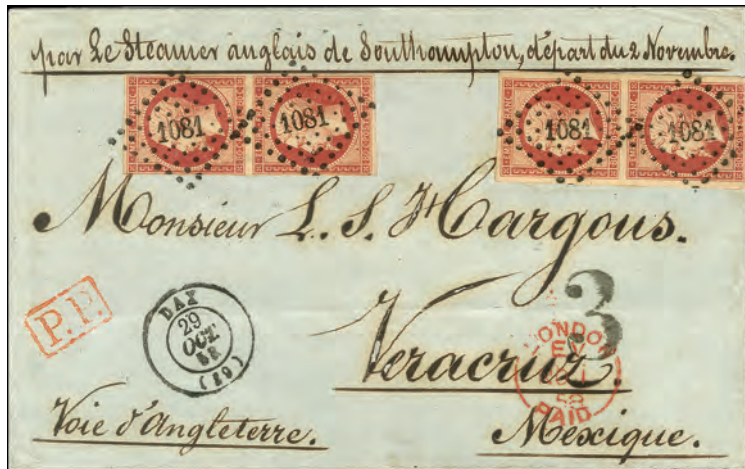 par Le Steamer anglais de Southampton, départ du 2 Novembre.
1081 1081 1081 1081
Monsieur L. S. Hargous.
P.P.
DAX
29
OCT.
58
(39)
3
LONDON
PAID
Veracruz.
Voie d'Angleterre.
Mexique.